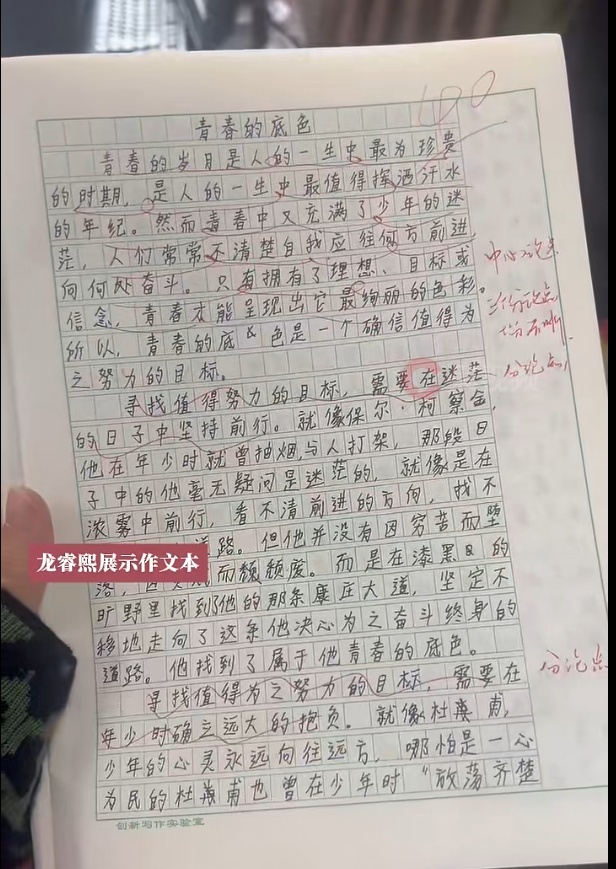 100
青春的底色
青春的岁月是人的一生中最为珍贵
的时期,是人的一生中最值得挥洒汗水
的年纪。然而青春中又充满了少年的迷
茫,人们常常不清楚自我应往何方前进,
向何处奋斗。只有拥有了理想、目标或
信念,青春才能呈现出它最绚丽的色彩。
所以,青春的底色是一个确信值得为
之努力的目标。
中心论点
分论点
分论点
寻找值得努力的目标,需要在迷茫
的日子中坚持前行。就像保尔·柯察金,
他在年少时就曾抽烟,与人打架,那段日
子中的他毫无疑问是迷茫的,就像是在
浓雾中前行,看不清前进的方向,找不
道路。但他并没有因穷苦而堕
落,而颓废。而是在漆黑的
旷野里找到了他的那条康庄大道,坚定不
移地走向了这条他决心为之奋斗终身的
道路。他找到了属于他青春的底色。
寻找值得为之努力的目标,需要在
年少时确立远大的抱负。就像杜甫,
少年的心灵永远向往远方,哪怕是一心
为民的杜甫也曾在少年时“放荡齐楚
分论点
龙睿熙展示作文本
创新写作实验室